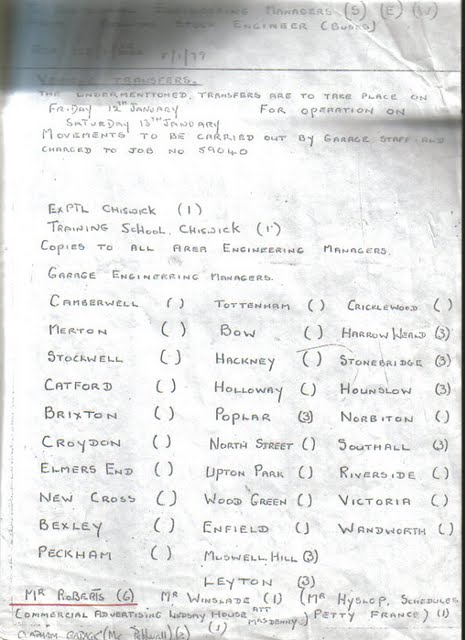 Engineering Managers (S) (E) (W)
Stock Engineer (Buses)
8/1/79
Vehicle Transfers.
The undermentioned, transfers are to take place on
Friday 12th January For operation on
Saturday 13th January
Movements to be carried out by garage staff and
charged to Job No 59040
Exptl Chiswick (1)
Training School, Chiswick (1)
Copies to all Area Engineering Managers.
Garage Engineering Managers.
Camberwell () Tottenham () Cricklewood ()
Merton () Bow () Harrow Weald (3)
Stockwell () Hackney () Stonebridge (3)
Catford () Holloway () Hounslow (3)
Brixton () Poplar (3) Norbiton ()
Croydon () North Street () Southall (3)
Elmers End () Upton Park () Riverside ()
New Cross () Wood Green () Victoria ()
Bexley () Enfield () Wandworth ()
Peckham () Muswell Hill (3)
Leyton (3)
Mr Roberts (6) Mr Winslade (1) (Mr Hyslop, Schedules
(Commercial Advertising Lindsay House att Mrs Denny) Petty France) (1)
(1)
Garage (Mr (2)